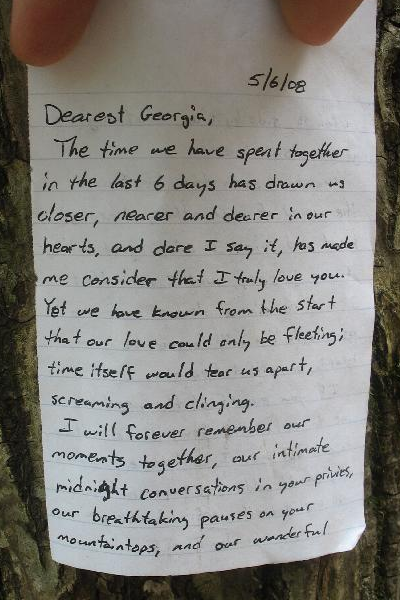 5/6/08
Dearest Georgia,
The time we have spent together
in the last 6 days has drawn us
closer, nearer and dearer in our
hearts, and dare I say it, has made
me consider that I truly love you.
Yet we have known from the start
that our love could only be fleeting;
time itself would tear us apart,
screaming and clinging.
I will forever remember our
moments together, our intimate
midnight conversations in your privies,
our breathtaking pauses on your
mountaintops, and our wonderful